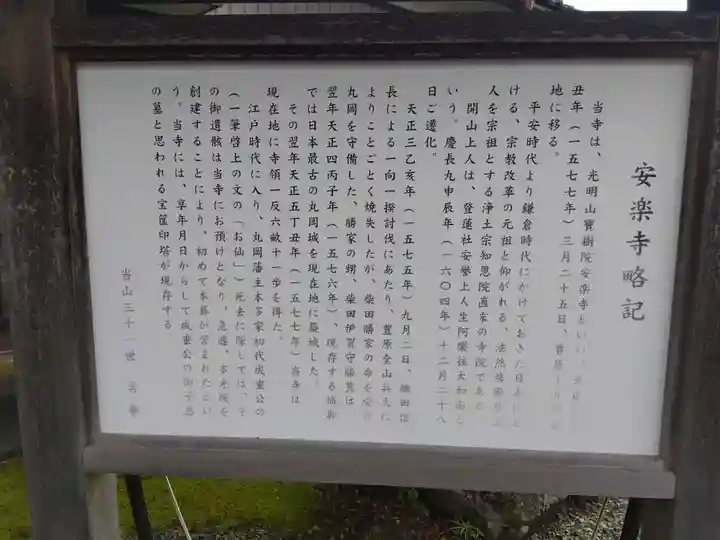 安楽寺略記
当寺は、光明山寶樹院安楽寺といい、天正
丑年(一五七七年)三月二十五日、豊原
地に移る。
平安時代より鎌倉時代にかけておきた日本に
ける、宗教改革の元祖と仰がれる、法然房源空上
人を宗祖とする浄土宗知恩院直末の寺院である
開山上人は、登蓮社安誉上人生阿欒往大和尚と
いう。慶長九申辰年(一六〇四年)十二月二十八
日ご遷化。
天正三乙亥年(一五七五年)九月二日、織田信
長による一向一揆討伐にあたり、豊原全山兵火に
よりことごとく焼失したが、柴田勝家の命を受け
丸岡を守備した、勝家の甥、柴田伊賀守勝豊は
翌年天正四丙子年(一五七六年)、現存する城郭
では日本最古の丸岡城を現在地に築城した。
その翌年天正五丁丑年(一五七七年)当寺は
現在地に寺領一反六畝十一歩を得た。
江戸時代に入り、丸岡藩主本多家初代成重公の
(一筆啓上の文の「お仙」)死去に際しては、そ
の御遺骸は当寺にお預けとなり、急遽、本光院を
創建することにより、初めて本葬が営まれたとい
う。当寺には、享年月日からして成重公の御子息
の墓と思われる宝篋印塔が現存する
当山三十一世